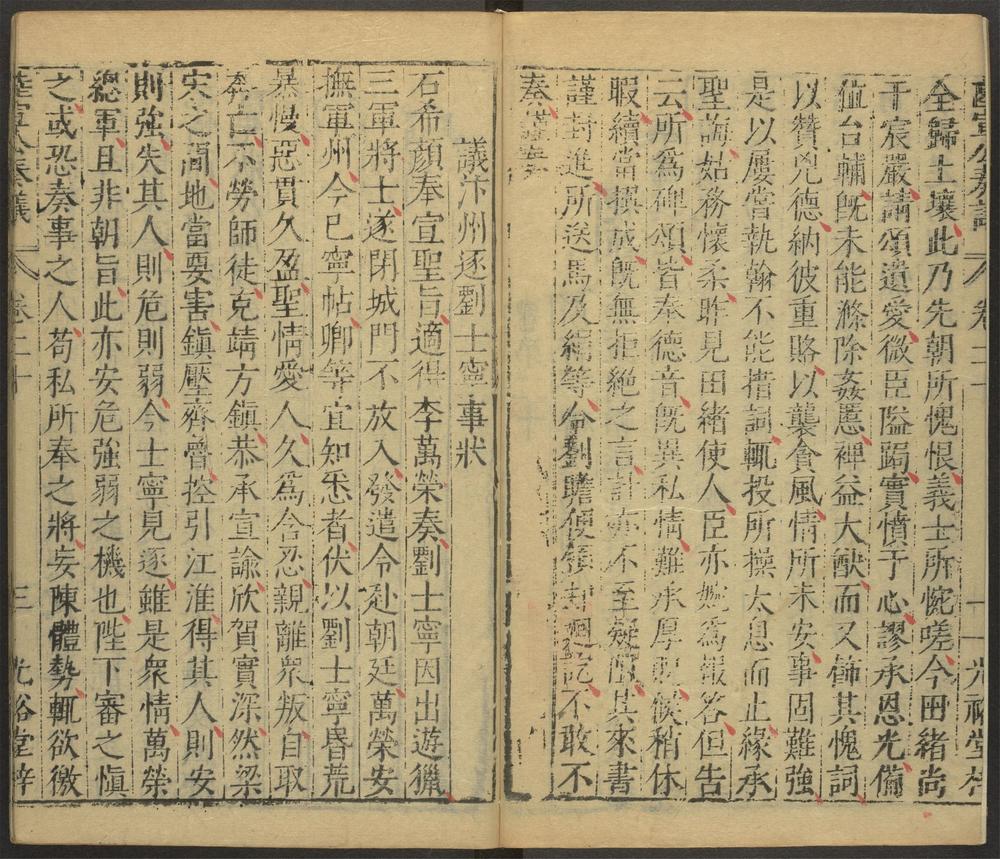 全歸土壤此乃先朝所愧恨義士所惋嗟今田緒尚
干宸嚴請頌遺愛微臣隘躅實憤于心謬承恩光備
位台輔旣未能滌除姦慝裨益大猷而又飾其愧詞
以贊兇德納彼重賂以襲貪風情所未安事固難強
是以屢嘗執翰不能措詞輒投所操太息而止緣承
聖誨姑務懷柔昨見田緒使人臣亦婉爲報答但告
云所爲碑頌皆奉德音旣異私情難承厚貺候稍休
暇續當撰成旣無拒絕之言計亦不至疑阻其來書
謹封進所送馬及絹等令劉瞻便領却迴訖不敢不
奏謹奏
議汴州逐劉士寧事狀
石希顏奉宣聖旨適得李萬榮奏劉士寧因出遊獵
三軍將士遂閉城門不放入發遣令赴朝廷萬榮安
撫軍州今已寧帖卿等宜知悉者伏以劉士寧昏荒
暴慢惡貫久盈聖情愛人久爲含忍親離衆叛自取
奔亡不勞師徒克靖方鎭恭承宣諭欣賀實深然梁
宋之間地當要害鎭壓齊魯控引江淮得其人則安
則強失其人則危則弱今士寧見逐雖是衆情萬榮
總軍且非朝旨此亦安危強弱之機也陛下審之愼
之或恐奏事之人苟私所奉之將妄陳體勢輒欲徼
陸宣公奏議 卷二十 三 光裕堂梓